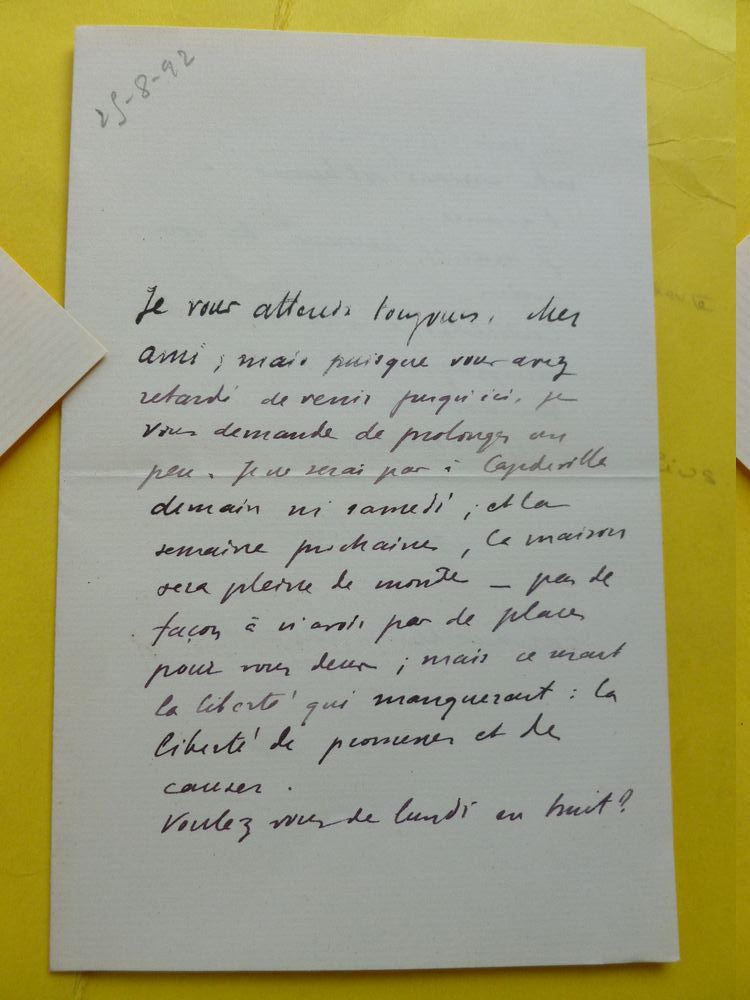 25-8-92
Je vous attends toujours, cher
ami ; mais puisque vous avez
retardé de venir jusqu'ici, je
vous demande de prolonger un
peu. Je ne serai pas à Capdeville
demain ni samedi ; et la
semaine prochaine, la maison
sera pleine de monde — pas de
façon à n'avoir pas de place
pour vous deux ; mais ce serait
la liberté qui manquerait : la
liberté de promener et de
causer.
Voulez vous de lundi en huit ?